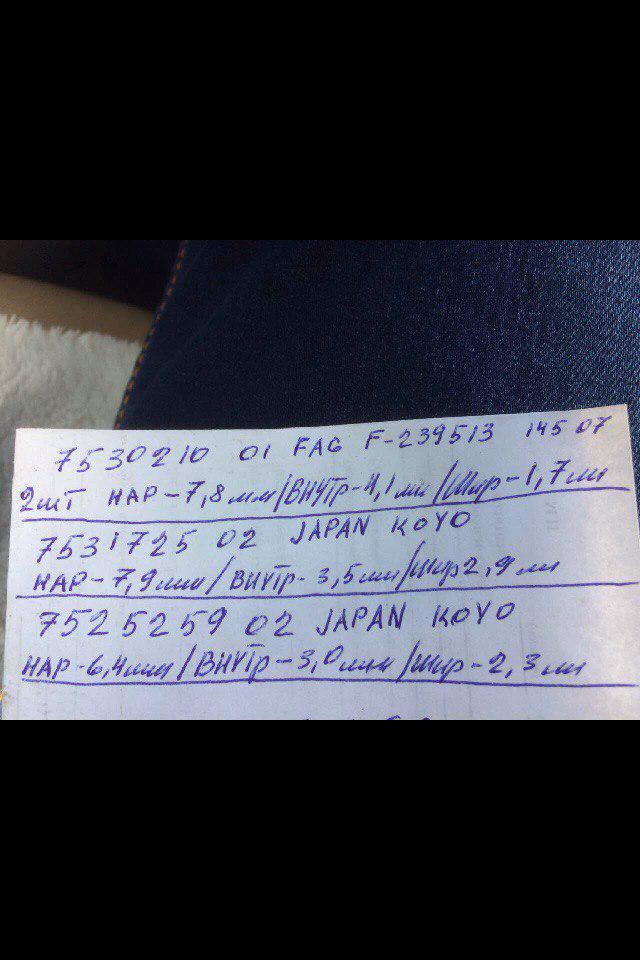 7530210 01 FAG F-239513 145 07
2шт НАР-7,8мм/ВНУТР-4,1мм/Шир-1,7мм
7531725 02 JAPAN KOYO
НАР-7,9мм/ВНУТР-3,5мм/Шир2,9мм
7525259 02 JAPAN KOYO
НАР-6,4мм/ВНУТР-3,0мм/Шир-2,3мм